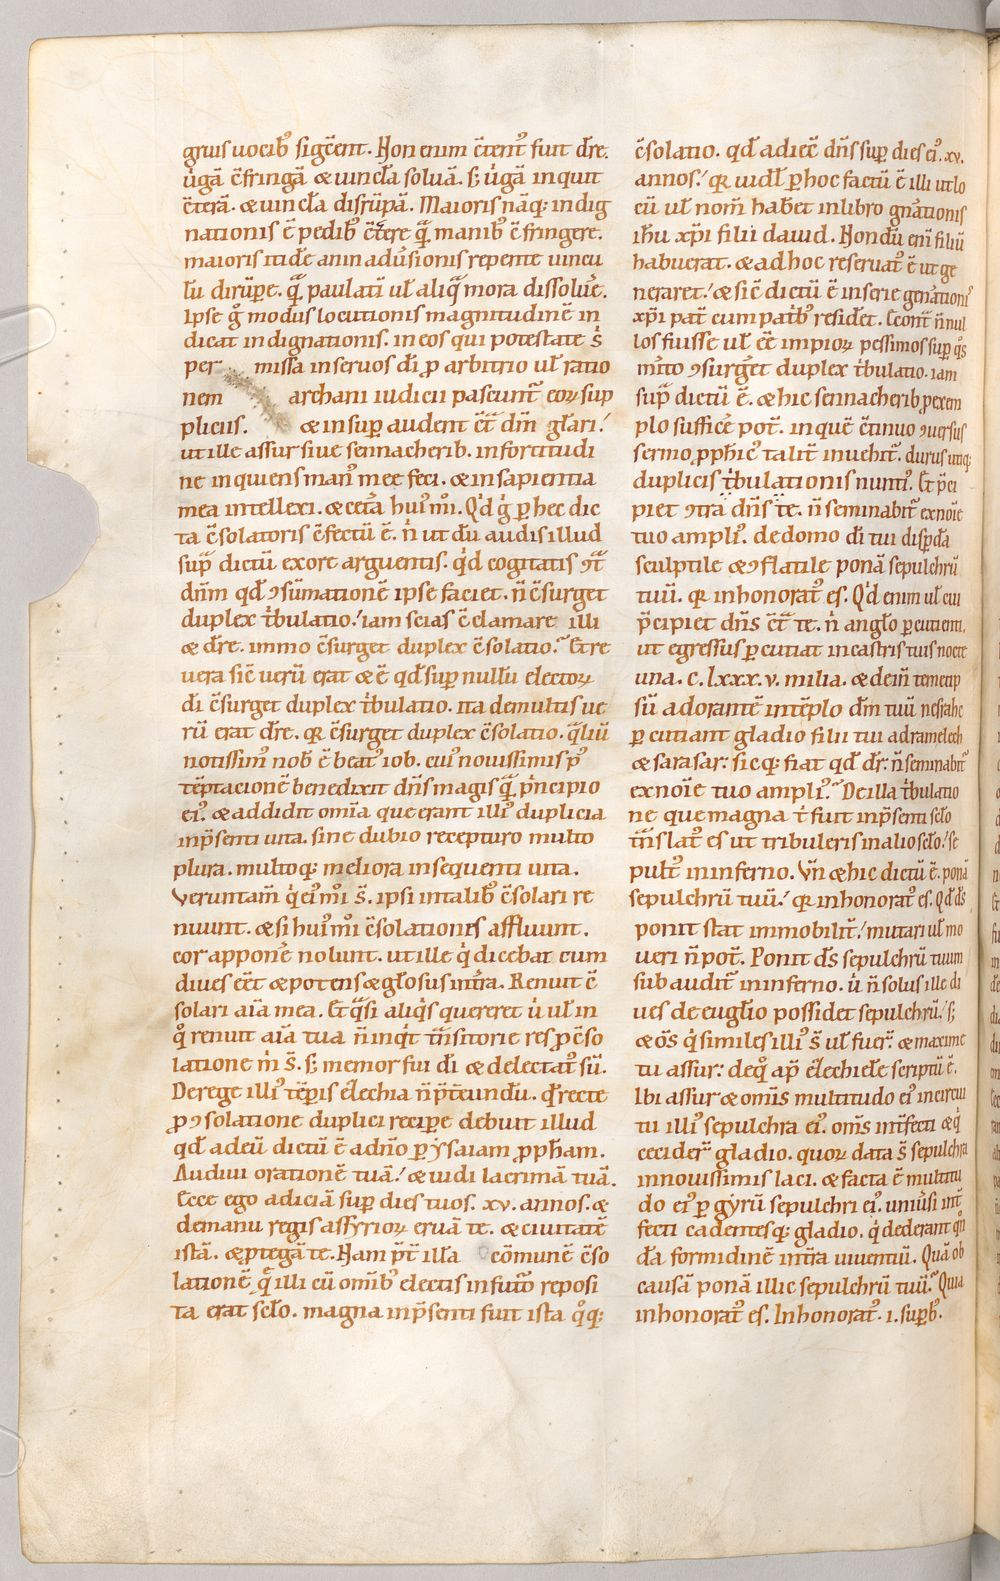 gruis uocib᷒ sigc̄ent. Non enim c̄tent᷒ fuit dr̄e.
ūgā c̄fringā & uincl̄a soluā. s; ūgā inquit
c̄terā. & uincl̄a disrūpā. Maioris nāq; indig
nationis ē pedib᷒ c̄tere q̄ manib᷒ c̄fringere.
maioris itidē animaduersionis repente uincu
lū dirūpe. q̄ paulatī ul̄ aliq̄ mora dissolue᷒.
Ipse g̊ modus locutionis magnitudinē in
dicat indignationis. in eos qui potestate s̄
per missa in seruos dī ꝓ arbitrio ul̄ ratio
nem archani iudicii pascunt᷒ eoꝝ sup
pliciis. & insuꝑ audent c̄t̄ dn̄m gl̄ari.
ut ille assur siue sennacherib. in fortitudi
ne inquiens man᷒ meę feci. & in sapientia
mea intellexi. & cet̄a hui᷒ m̄i. Qd̄ g̊ ꝑ hec dic
ta c̄solatoris c̄fectū ē. n̄ ut dū audis illud
sup̄ dictū ex ore arguentis. q̇d cogitatis ꝯt̄
dn̄m qd̄ ꝯsūmationē ipse faciet. n̄ c̄surget
duplex t̄bulatio. iam scias c̄clamare illi
& dr̄e. immo c̄surget duplex c̄solatio. Et re
uera sic̄ uerū erat & ē qd̄ suꝑ nullū electoꝝ
dī c̄surget duplex t̄bulatio. ita de multis ue
rū erat dr̄e. qꝛ c̄surget duplex c̄solatio. q̄liū
notissim᷒ nob᷒ ē beat᷒ iob. cui᷒ nouissimis p᷒
tēptacionē benedixit dn̄s magis q̄ pi̇ncipio
ei᷒. & addidit om̄ia que erant illi᷒ duplicia
in p̄senti uita. sine dubio recepturo multo
plura. multoq; meliora in sequenti uita.
Veruntam̄ q̇ ei᷒ m̄i s̄. ipsi in talib᷒ c̄solari re
nuunt. & si hui᷒ m̄i c̄solationes affluunt.
cor apponē nolunt. ut ille q̇ dicebat cum
diues eēt & potens & gl̄osus intra. Renuit c̄
solari aīa mea. Et q̄si aliq̇s quereret ū ul̄ in
q̊ renuit aīa tua n̄ inq̇t t̄nsitorie res ꝓ c̄so
latione m̄ s̄. s; memor fui dī & delectat᷒ sū.
De rege illi᷒ tēpis ezechia n̄ p̄t̄eundū. qd̄ recte
ꝓ ꝯsolatione duplici recipe debuit illud
qd̄ ad eū dictū ē a dn̄o ꝑ ysaiam ꝓph̄am.
Audiui orationē tuā. & uidi lacrimā tuā.
Ecce ego adiciā suꝑ dies tuos. xv. annos. &
de manu regis assyrioꝝ eruā te. & ciuitatē
istā. & ꝓtegā te. Nam p̄t illā cōmunē c̄so
lationē. q̄ illi cū om̄ib᷒ electis in futo᷒ reposi
ta erat sclo. magna in p̄senti fuit ista q̊q;
c̄solatio. qd̄ adiec̄ dn̄s suꝑ dies ei᷒. xv.
annos. qꝛ uidl̄ ꝑ hoc factū ē illi ut lo
cū ul̄ nom̄ habet in libro gn̄ationis
ih̄u xp̄i filii dauid. Nondū eni filiū
habuerat. & ad hoc reseruat᷒ ē ut ge
neraret. & sic̄ dictū ē in serie gen̄ationi᷒
xp̄i pat̄ cum pat̄b᷒ residet. Econt̄ n̄ nul
los fuisse ul̄ eē impioꝝ pessimos suꝑ q̊s
m̄ito ꝯsurget duplex t̄bulatio. iam
sup̄ dictū ē. & hic sennacherib ꝓ exem
plo sufficē pot̄. in quē c̄tinuo ꝯuersus
sermo ꝓphic᷒ talit̄ inuehit᷒. durus utiq;
duplicis t̄bulationis nunti᷒. Et p̄ci
piet ꝯtra dn̄s te. n̄ seminabit᷒ ex noīe
tuo ampli᷒. de domo dī tui disꝑdā
sculptile & ꝯflatile ponā sepulchrū
tuū. qꝛ inhonorat᷒ es. Qd̄ enim ul̄ cui
p̄cipiet dn̄s c̄t̄ te. n̄ angl̄o ꝑcutienti.
ut egressus ꝑcutiat in castris tuis nocte
una. c. lxxx. v. milia. & dein̄ temetip
sū adorantē in tēplo dm̄ tuū nesrahc
ꝑcutiant gladio filii tui adramelech
& sarasar: sicq; fiat qd̄ dr̄: n̄ seminabit᷒
ex noīe tuo ampli᷒. De illa t̄bulatio
ne que magna t̄ fuit in p̄senti sclo
t̄nslat᷒ es ut tribuleris in alio sclo. se
pult᷒ in inferno. Vn̄ & hic dictū ē. ponā
sepulchrū tuū. qꝛ inhonorat᷒ es. Qd̄ ds̄
ponit stat immobilit̄. mutari ul̄ mo
ueri n̄ pot̄. Ponit ds̄ sepulchrū tuum
sub audit᷒ in inferno. ū n̄ solus ille di
ues de euḡlio possidet sepulchrū. s;
& om̄s q̇ similes illi᷒ s̄ ul̄ fuer̄. & maxime
tu assur: de q̊ ap̄ ezechiele scriptū ē.
Ibi assur & omīs multitudo ei᷒ in circui
tu illi᷒ sepulchra ei᷒. om̄s int̄fecti & q̇
cecider̄ gladio. quoꝝ data s̄ sepulchra
in nouissimis laci. & facta ē multitu
do ei᷒ ꝑ gyrū sepulchri ei᷒. uniūsi int̄
fecti cadentesq; gladio. q̇ dederant qn̄
dā formidinē in t̄ra uiuentiū. Quā ob
causā ponā illic sepulchrū tuū. Quia
inhonorat᷒ es. Inhonorat᷒. i. suꝑb᷒.